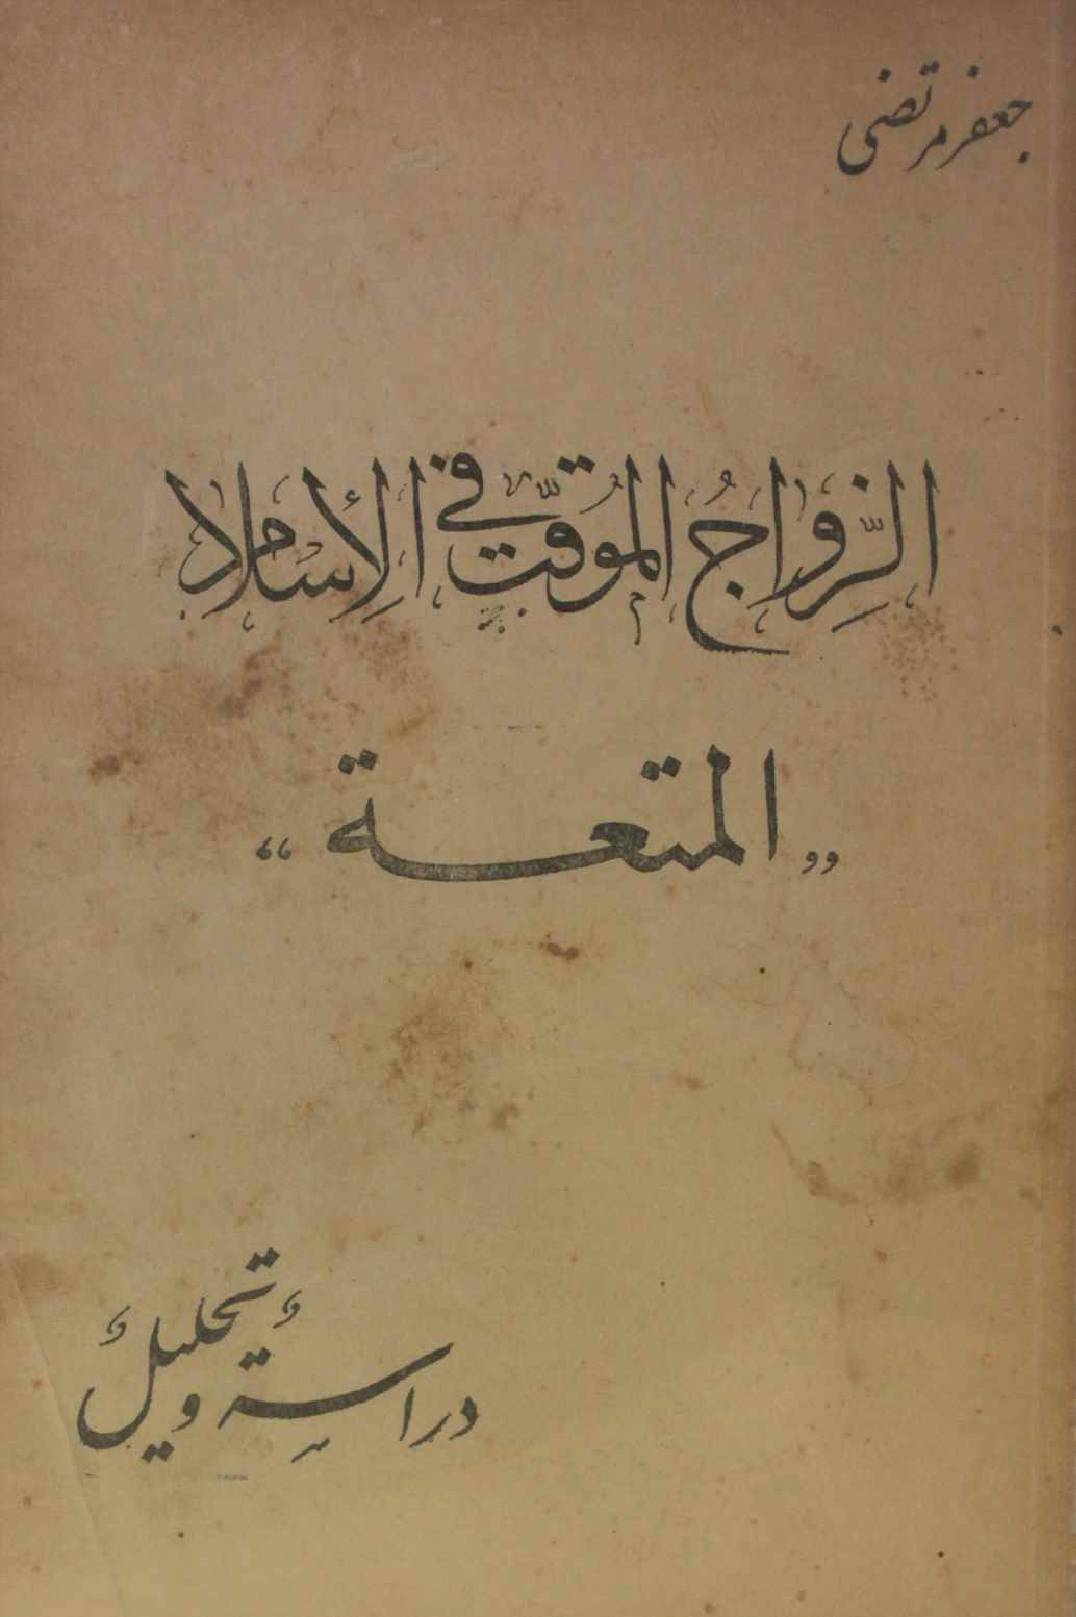 جعفر مرتضى
الزِّواجُ المُوقّت في الإِسلام
„المتعة“
دراسِةٌ وتحليلٌ